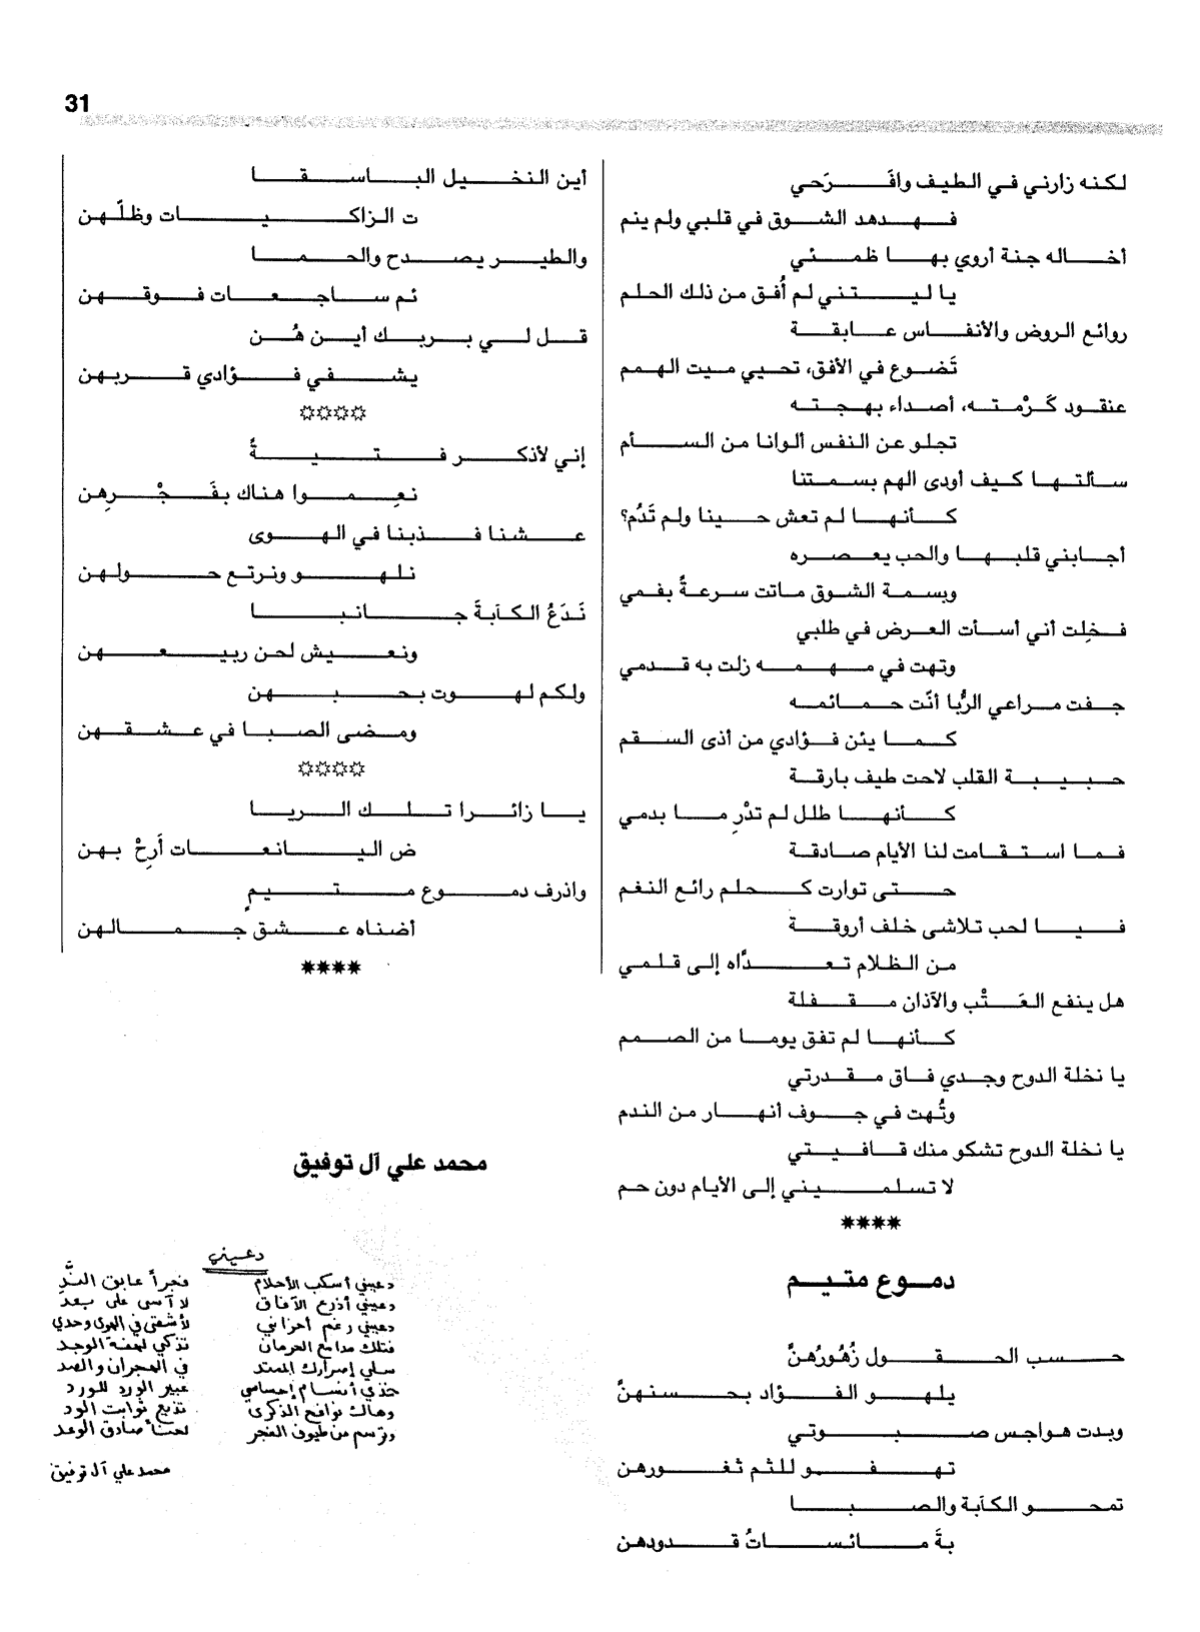 31
لكنه زارني في الطيف وافَرَحي
فهدهد الشوق في قلبي ولم ينم
أخاله جنة أروي بها ظمئي
يا ليتني لم أُفق من ذلك الحلم
روائع الروض والأنفاس عابقة
تَضوع في الأفق، تحيي ميت الهمم
عنقود كَرْمته، أصداء بهجته
تجلو عن النفس الوانا من السأم
سألتها كيف أودى الهم بسمتنا
كأنها لم تعش حينا ولم تَدُم؟
أجابني قلبها والحب يعصره
وبسمة الشوق ماتت سرعةً بفمي
فخِلت أني أسأت العرض في طلبي
وتهت في مهمه زلت به قدمي
جفت مراعي الرُّبا أنّت حمائمه
كما يئن فؤادي من أذى السقم
حبيبة القلب لاحت طيف بارقة
كأنها طلل لم تدْرِ ما بدمي
فما استقامت لنا الأيام صادقة
حتى توارت كحلم رائع النغم
فيا لحب تلاشى خلف أروقة
من الظلام تعدَّاه إلى قلمي
هل ينفع العَتْب والآذان مقفلة
كأنها لم تفق يوما من الصمم
يا نخلة الدوح وجدي فاق مقدرتي
وتُهت في جوف أنهار من الندم
يا نخلة الدوح تشكو منك قافيتي
لا تسلميني إلى الأيام دون حم
****
دموع متيم
حسب الحقول زُهُورُهنَّ
يلهو الفؤاد بحسنهنَّ
وبدت هواجس صبوتي
تهفو للثم ثغورهن
تمحو الكآبة والصبا
بةَ مائساتُ قدودهن
أين النخيل الباسقا
ت الزاكيات وظلّهن
والطير يصدح والحما
ئم ساجعات فوقهن
قل لي بربك أين هُن
يشفي فؤادي قربهن
☼☼☼☼
إني لأذكر فتيةً
نعِموا هناك بفَجْرِهن
عشنا فذبنا في الهوى
نلهو ونرتع حولهن
نَدَعُ الكآبةَ جانبا
ونعيش لحن ربيعهن
ولكم لهوت بحبهن
ومضى الصبا في عشقهن
☼☼☼☼
يا زائرا تلك الريا
ض اليانعات أَرِحْ بهن
واذرف دموع متيمٍ
أضناه عشق جمالهن
****
محمد علي آل توفيق
دعيني
دعيني أسكب الأحلام فجراً عابق النَّدِ
دعيني أذرع الآفاق لا آسى على بعد
دعيني رغم أحزاني لأشقى في الهوى وحدي
فتلك مدامع الحرمان تذكي لهفة الوجد
سلي إصرارك الممتد في الهجران والصد
خذي أنسام إحساسي عبير الورد للورد
وهاك نوافح الذكرى تذيع ثوابت الود
وترسم من طيوف الفجر لحناً صادق الوعد
محمد علي آل توفيق